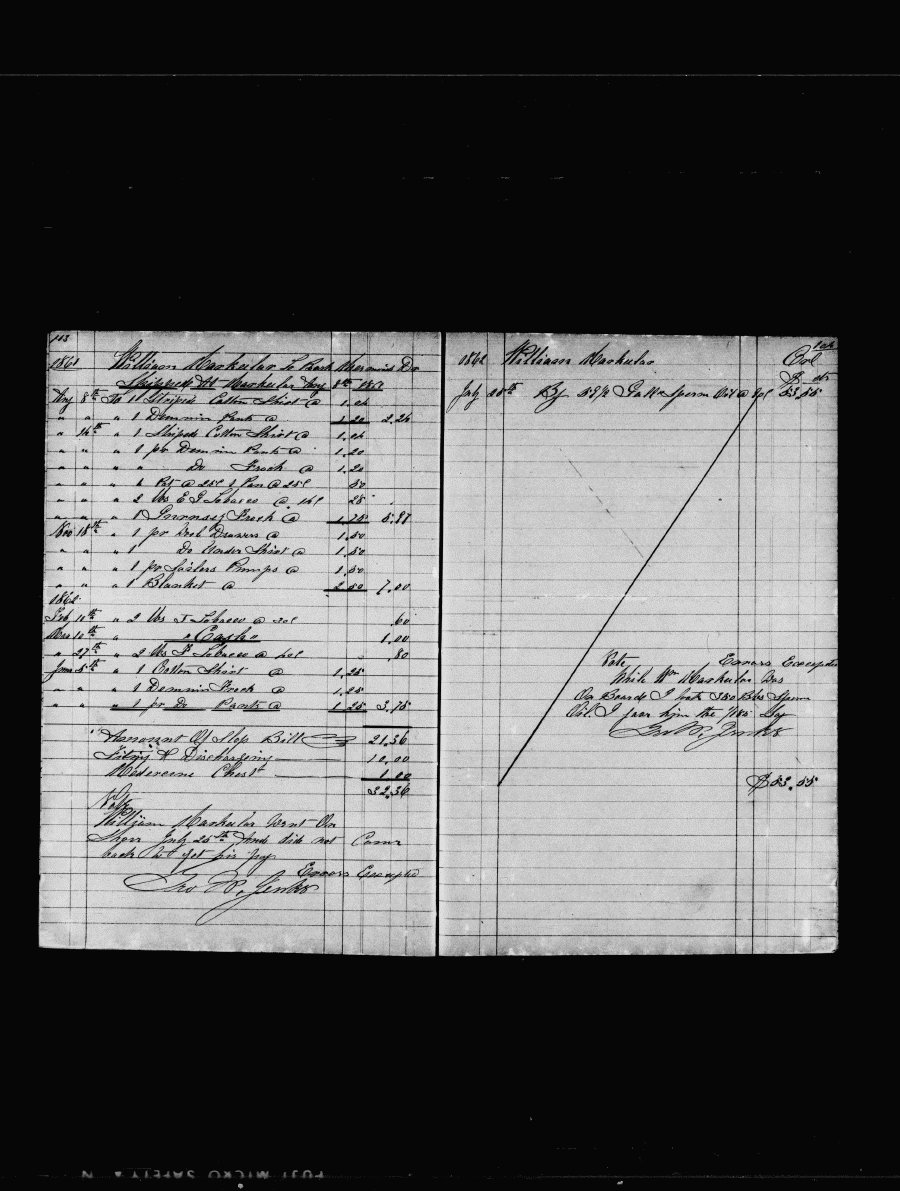 103
1861 William Markular To Bark Dr
Shipped At Markular 8th 1861
8th To 1 Striped Cotton Shirt @ 1.04
" " " 1 Demmin Pants @ 1.20 2.24
" 14th " 1 Striped Cotton Shirt @ 1.04
" " " 1 pr Demmin Pants @ 1.20
" " " " Do Frock @ 1.20
" " " 1 Pot @ 25c 1 Pan @ 25c 50
" " " 2 lbs Tobacco @ 14c 28
" " " 1 Gurnsey Frock @ 1.75 5.97
Nov 18th " 1 pr Drawers @ 1.50
" " " 1 Do Under Shirt @ 1.50
" " " 1 pr Sailers Pumps @ 1.50
" " " 1 Blanket @ 2.50 7.00
1862
Feb 10th " 2 lbs Tobacco @ 30c .60
Mar 10th " " Cash 1.00
" 27th " 2 lbs Tobacco @ 40c .80
June 5th " 1 Cotton Shirt @ 1.25
" " " 1 Demmin Frock @ 1.25
" " " 1 pr Do Pants @ 1.25 3.75
Amount Of Slop Bill 21.36
Fiting & Discharging 10.00
Medercine Chest 1.00
32.36
Note
William Markular Went On
Shore July 25th And did not Come
back to get his pay
Errors Excepted
Geo W. Jenks
104
1862 William Markular Col
$ cts
July 25th By Galls Sperm Oil @ 53.55
Note Errors Excepted
While Wm Markular Was
On Board I took Bbls Sperm
Oil. I gave him the 1/185 Lay
Geo W. Jenks
$53.55
FUJI MICRO SAFETY